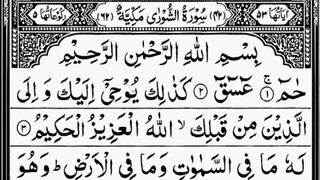 اٰيَاتُهَا ٥٣ (٤٢) سُوْرَةُ الشُّوْرٰى مَكِّيَّةٌ (٦٢) رُكُوْعَاتُهَا ٥
بِسْمِ اللّٰهِ الرَّحْمٰنِ الرَّحِيْمِ
حٰمٓ ۚ ١ عٓسٓقٓ ٢ كَذٰلِكَ يُوْحِيْٓ اِلَيْكَ وَ اِلَى
الَّذِيْنَ مِنْ قَبْلِكَ ۙ اللّٰهُ الْعَزِيْزُ الْحَكِيْمُ ٣
لَهٗ مَا فِي السَّمٰوٰتِ وَمَا فِي الْاَرْضِ ؕ وَهُوَ